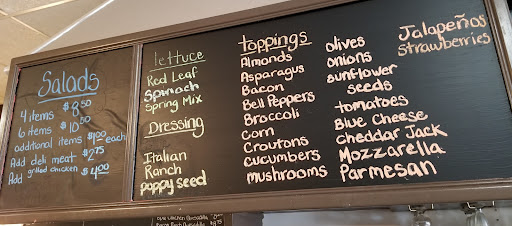 Salads
4 items $8.50
6 items $10.50
additional items $1.00 each
Add deli meat $2.75
Add grilled chicken $4.00
lettuce
Red Leaf
Spinach
Spring Mix
Dressing
Italian
Ranch
poppy seed
toppings
Almonds
Asparagus
Bacon
Bell Peppers
Broccoli
Corn
Croutons
cucumbers
mushrooms
olives
onions
sunflower
seeds
tomatoes
Blue Cheese
cheddar Jack
Mozzarella
Parmesan
Jalapeños
strawberries